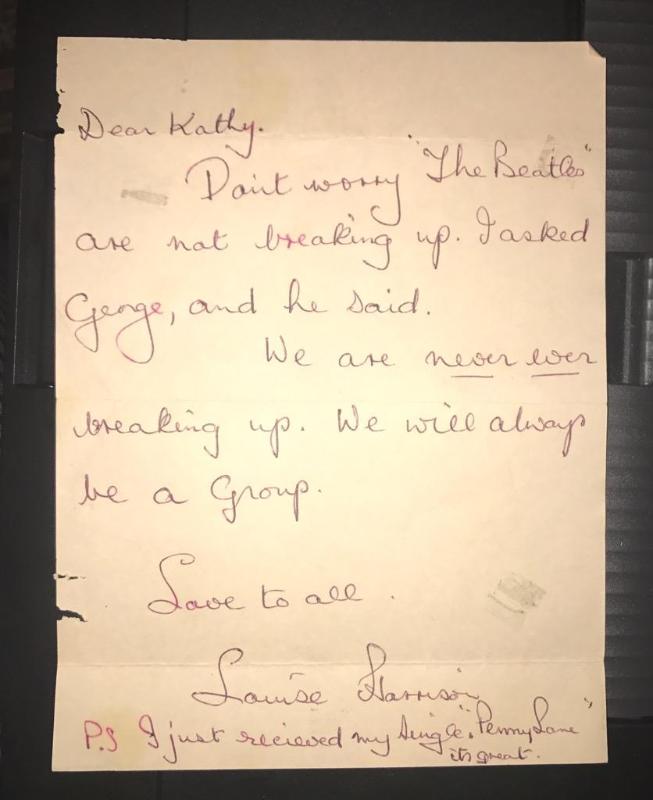 Dear Kathy.
Don't worry "The Beatles"
are not breaking up. I asked
George, and he said.
We are never ever
breaking up. We will always
be a Group.
Love to all.
Louise Harrison
P.S I just recieved my single "Penny Lane"
its great.